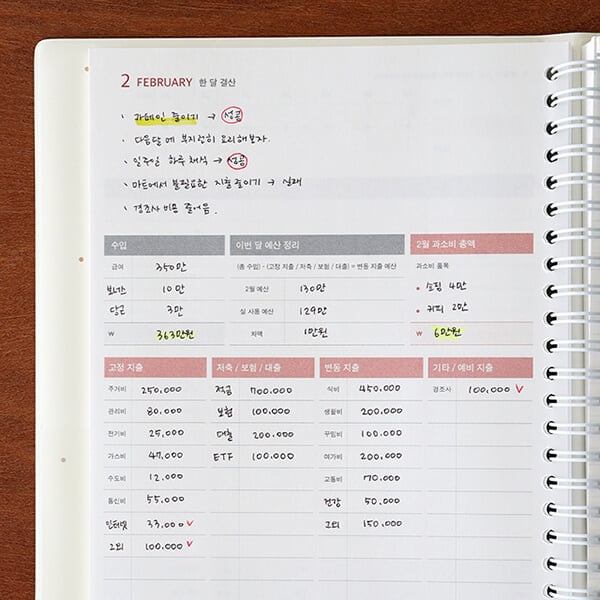 2 FEBRUARY 한 달 결산
· 카페인 줄이기 → 성공
· 다음달에 부지런히 요리해보자.
· 일주일 하루 채식 → 성공
· 마트에서 불필요한 지출 줄이기 → 실패
· 경조사 비용 줄어듬.
수입 이번 달 예산 정리 2월 과소비 총액
급여 350만 (총 수입) - (고정 지출 / 저축 / 보험 / 대출) = 변동 지출 예산 과소비 품목
보너스 10만 2월 예산 130만 • 쇼핑 4만
당근 3만 실 사용 예산 129만 • 커피 2만
₩ 363만원 차액 1만원 ₩ 6만원
고정 지출 저축 / 보험 / 대출 변동 지출 기타 / 예비 지출
주거비 250.000 적금 700.000 식비 450.000 경조사 100.000 ✓
관리비 80.000 보험 100.000 생활비 200.000
전기비 25,000 대출 200.000 꾸밈비 100.000
가스비 47,000 ETF 100.000 여가비 200.000
수도비 12.000 교통비 70.000
통신비 55.000 건강 50.000
인터넷 33.000 ✓ 그외 150.000
그외 100.000 ✓